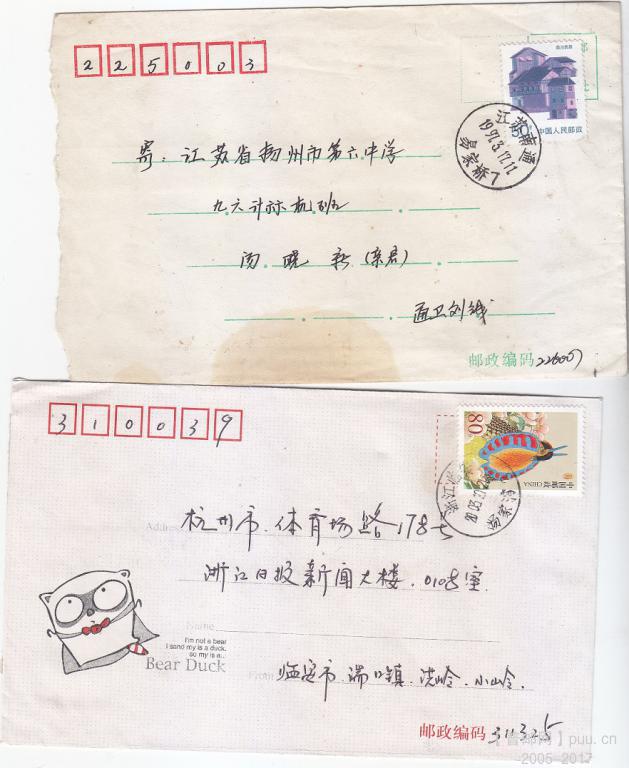 225003
四川民居
50
中国人民邮政
江苏南通
1997.3.17.11
杨家桥7
寄:江苏省扬州市第六中学
九六计标机班
周晓彩(亲启)
通卫刘钱
邮政编码 226007
310039
80
中国邮政 CHINA
浙江
杨家
Address
杭州市.体育场路178号
浙江日报新闻大楼.0108室
Name
I'm not a bear
I sand my is a duck.
so my is a...
Bear Duck
From
临安市.湍口镇.洪岭.小山岭.
邮政编码 311325
puu.cn
2005-2017